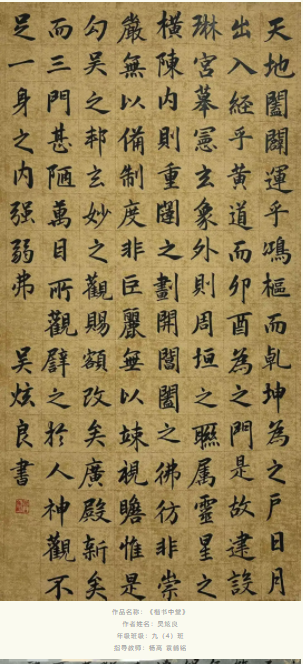 天地闔闢運乎鴻樞而乹坤為之戶日月
出入經乎黄道而卯酉為之門是故建設
琳宮摹憲玄象外則周垣之聮属靈星之
橫陳内則重闥之劃開閶闔之彿彷非崇
嚴無以備制度非巨麗無以竦視瞻惟是
勾吳之邦玄妙之觀賜額改矣廣殿新矣
而三門甚陋萬目所觀譬之於人神觀不
足一身之内强弱弗 吳炫良書
作品名称：《楷书中堂》
作者姓名：吴炫良
年级班级：九（4）班
指导教师：